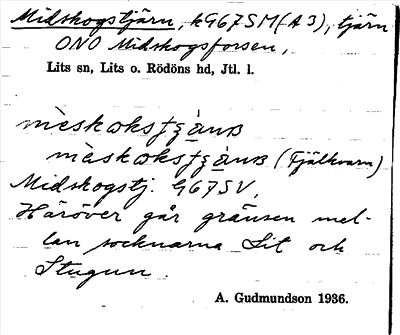 Midskogstjärn, k967SM(A3), tjärn
ONO Midskogsforsen,
Lits sn, Lits o. Rödöns hd, Jtl. l.
(Fjälkvarn)
Midskogstj. 967SV,
Häröver går gränsen mel-
lan socknarna Lit och
Stugun.
A. Gudmundson 1936.